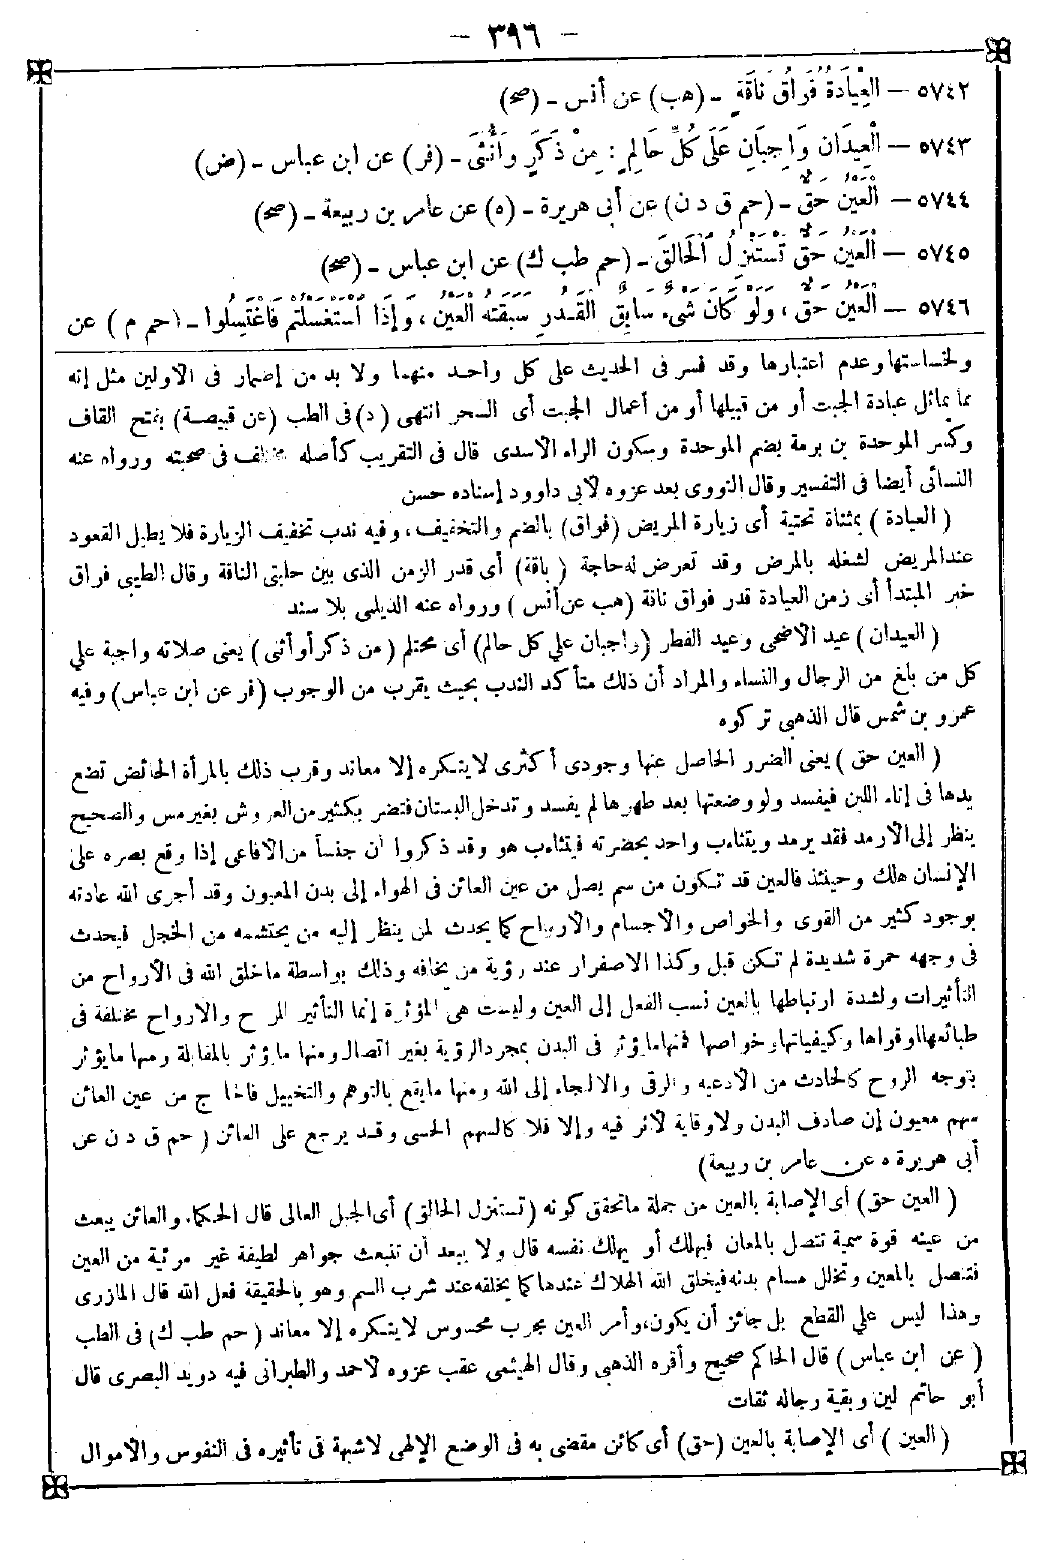 — ٣٩٦ —
٥٧٤٢ — الْعِيَادَةُ فُوَاقُ نَاقَةٍ - (هب) عن أنس - (صح)
٥٧٤٣ — الْعِيدَانِ وَاجِبَانِ عَلَى كُلِّ حَالِمٍ : مِنْ ذَكَرٍ وَأُنْثَى - (فر) عن ابن عباس - (ض)
٥٧٤٤ — الْعَيْنُ حَقٌّ - (حم ق د ن) عن أبى هريرة - (ه) عن عامر بن ربيعة - (صح)
٥٧٤٥ — الْعَيْنُ حَقٌّ تَسْتَنْزِلُ الْحَالِقَ - (حم طب ك) عن ابن عباس - (صح)
٥٧٤٦ — الْعَيْنُ حَقٌّ ، وَلَوْ كَانَ شَىْءٌ سَابِقُ الْقَدَرِ سَبَقَتْهُ الْعَيْنُ ، وَإِذَا اسْتُغْسِلْتُمْ فَاغْتَسِلُوا - (حم م ) عن
ولخساستها وعدم اعتبارها وقد فسر فى الحديث على كل واحد منهما ولا بد من إضمار فى الأولين مثل إنه
مما يماثل عبادة الجبت أو من قبيلها أو من أعمال الجبت أى السحر انتهى (د) فى الطب (عن قبيصة) بفتح القاف
وكسر الموحدة بن برمة بضم الموحدة وسكون الراء الأسدى قال فى التقريب كأصله مختلف فى صحبته ورواه عنه
النسائى أيضا فى التفسير وقال النووى بعد عزوه لأبى داوود إسناده حسن
( العيادة ) بمثناة تحتية أى زيارة المريض (فواق) بالضم والتخفيف، وفيه ندب تخفيف الزيارة فلا يطيل القعود
عند المريض لشغله بالمرض وقد تعرض له حاجة ( ناقة) أى قدر الزمن الذى بين حلبتى الناقة وقال الطيبى فراق
خبر المبتدأ أى زمن العيادة قدر فواق ناقة (هب عن أنس ) ورواه عنه الديلمى بلا سند
( العيدان ) عيد الأضحى وعيد الفطر (واجبان على كل حالم) أى محتلم ( من ذكر أو أنثى ) يعنى صلاته واجبة على
كل من بلغ من الرجال والنساء والمراد أن ذلك متأكد الندب بحيث يقرب من الوجوب (فر عن ابن عباس) وفيه
عمرو بن شمس قال الذهبى تركوه
( العين حق ) يعنى الضرر الحاصل عنها وجودى أكثرى لا ينكره إلا معاند وقرب ذلك بالمرأة الحائض تضع
يدها فى إناء اللبن فيفسد ولو وضعتها بعد طهرها لم يفسد وتدخل البستان فتضر بكثير من العروش بغير مس والصحيح
ينظر إلى الأرمد فقد يرمد ويتثاءب واحد بحضرته فيتثاءب هو وقد ذكروا أن جنساً من الأفاعى إذا وقع بصره على
الإنسان هلك وحينئذ فالعين قد تكون من سم يصل من عين العائن فى الهواء إلى بدن المعيون وقد أجرى الله عادته
بوجود كثير من القوى والخواص والأجسام والأرواح كما يحدث لمن ينظر إليه من يحتشمه من الخجل فيحدث
فى وجهه حمرة شديدة لم تكن قبل وكذا الاصفرار عند رؤية من يخافه وذلك بواسطة ما خلق الله فى الأرواح من
التأثيرات ولشدة ارتباطها بالعين نسب الفعل إلى العين وليست هى المؤثرة إنما التأثير للروح والارواح مختلفة فى
طبائعها وقواها وكيفياتها وخواصها فمنها ما يؤثر فى البدن بمجرد الرؤية بغير اتصال ومنها ما يؤثر بالمقابلة ومنها ما يؤثر
بتوجه الروح كالحادث من الأدعية والرقى والالتجاء إلى الله ومنها ما يقع بالتوهم والتخييل فالخارج من عين العائن
سهم معيون إن صادف البدن ولا وقاية لأثر فيه وإلا فلا كالسهم الحسى وقد يرجع على العائن ( حم ق د ن عن
أبى هريرة ه عن عامر بن ربيعة)
( العين حق) أى الإصابة بالعين من جملة ما تحقق كونه (تستنزل الحالق) أى الجبل العالى قال الحكماء والعائن يبعث
من عينه قوة سمية تتصل بالمعان فيهلك أو يهلك نفسه قال ولا يبعد أن تنبعث جواهر لطيفة غير مرئية من العين
فتتصل بالمعين وتخلل مسام بدنه فيخلق الله الهلاك عندها كما يخلقه عند شرب السم وهو بالحقيقة فعل الله قال المازرى
وهذا ليس على القطع بل جائز أن يكون، وأمر العين مجرب محسوس لا ينكره إلا معاند ( حم طب ك) فى الطب
( عن ابن عباس ) قال الحاكم صحيح وأقره الذهبى وقال الهيثمى عقب عزوه لأحمد والطبرانى فيه دويد البصرى قال
أبو حاتم لين وبقية رجاله ثقات
( العين ) أى الإصابة بالعين (حق) أى كائن مقضى به فى الوضع الإلهى لا شبهة فى تأثيره فى النفوس والأموال